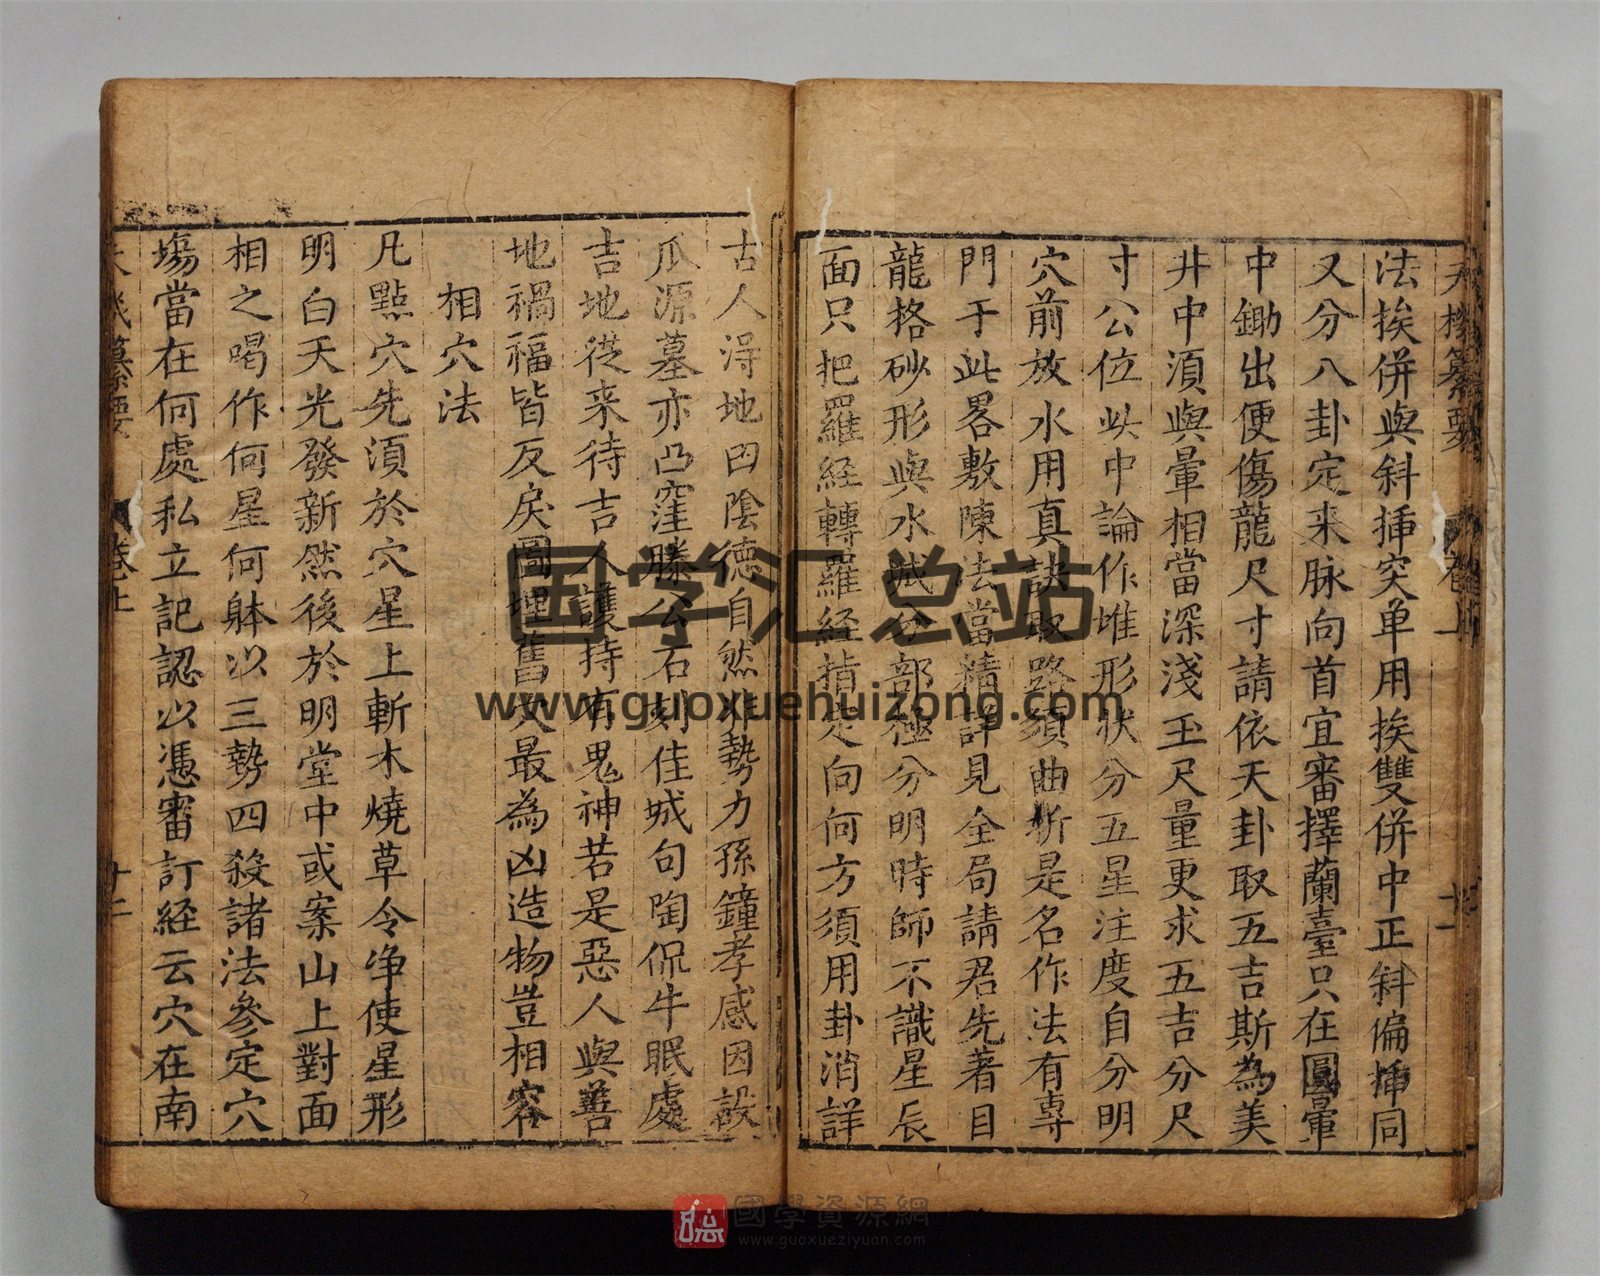 天機纂要
卷上
十一
法挨併與斜揷突单用挨雙併中正斜偏揷同
又分八卦定来脉向首宜審擇蘭臺只在圓暈
中鋤出便傷龍尺寸請依天卦取五吉斯為美
井中湏與暈相當深淺玉尺量更求五吉分尺
寸公位此中論作堆形状分五星注度自分明
穴前放水用真訣取路須曲折是名作法有専
門于此畧敷陳法當精詳見全局請君先著目
龍格砂形與水城分部極分明時師不識星辰
面只把羅経轉羅経指定向何方須用卦消詳
古人淂地因陰德自然非勢力孫鐘孝感因設
瓜源墓亦凸窪滕公石刻佳城句陶侃牛眠處
吉地從来待吉人護持有鬼神若是惡人與善
地禍福皆反戾圖埋舊穴最為凶造物豈相容
相穴法
凡點穴先湏於穴星上斬木燒草令净使星形
明白天光發新然後於明堂中或案山上對面
相之喝作何星何躰以三勢四殺諸法參定穴
塲當在何處私立記認以憑審訂経云穴在南
天機纂要
卷上
十二
国学汇总站
www.guoxuehuizong.com
國學資源網
www.guoxueziyuan.com